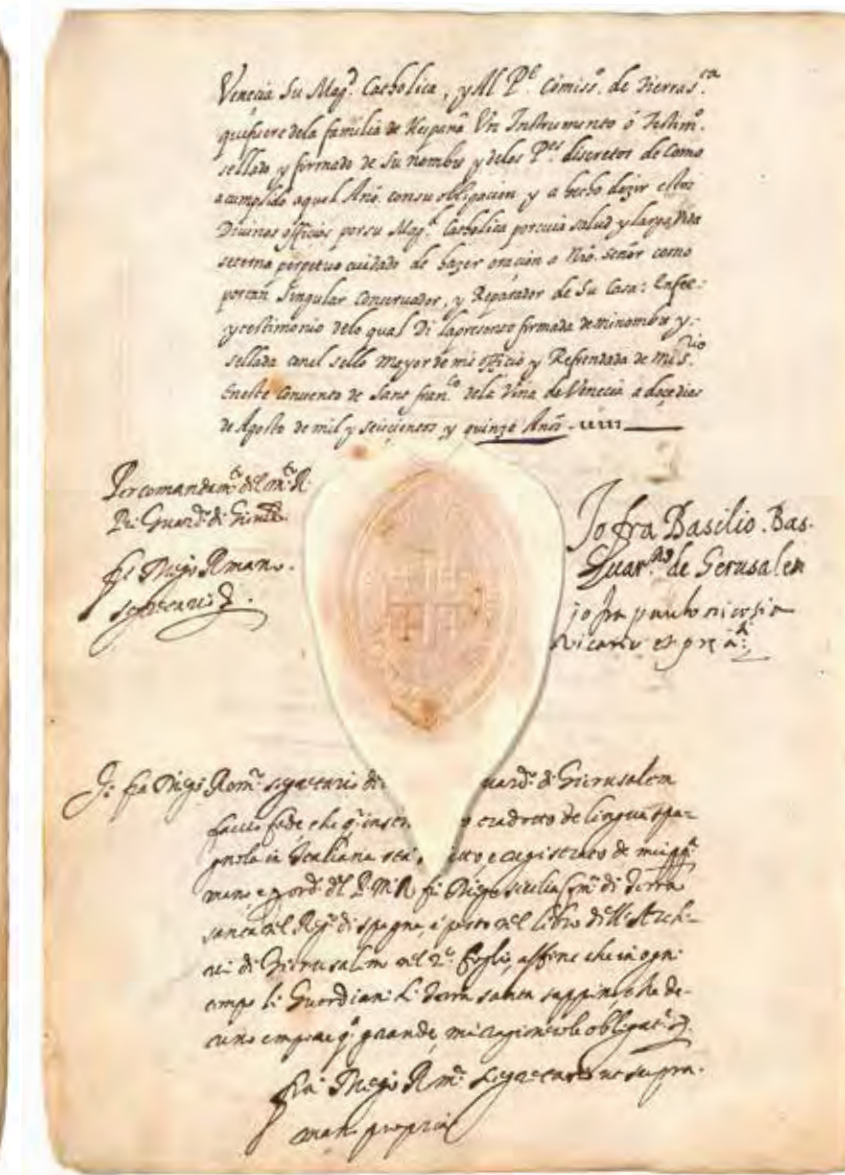 Venecia Su Mag.ᵈ Catholica, y Al P.ᵉ Comiss.º de Tierra S.ᶜᵃ
que fuere de la familia de Hespaña Un Instrumento ó Testim.º
sellado y firmado de Su nombre y de los P.ᵉˢ discretos de como
a cumplido aquel Año. con su obligacion y a hecho dezir estos
Divinos officios por su Mag.ᵈ Catholica por cuia salud y larga Vida
se terna perpetuo cuidado de hazer oracion a Nr̃o. Señor como
por tan Singular Conservador, y Reparador de Su Casa: En fee:
y testimonio de lo qual Di la presente firmada de mi nombre y:
sellada con el sello mayor de mi officio y Refrendada de mi S.ʳⁱᵒ
En este Convento de Sant fran.ᶜᵒ de la Viña de Venecia a doce dias
de Agosto de mil y seiscientos y quinze Años
Per comandam.ᵗᵒ del m.ᵗᵒ R.
P.ᵉ Guard.º di Gierus.
fr. Diego Romano.
segretario
Io fra Basilio. Bas.
Guar.ⁿᵒ de Gerusalem
io fra paulo nicosia
vicario et
Io fra Diego Rom.º segretario di uard.º di Gierusalem
faccio fede che q.º o tradotto de lingua spa-
gnola in Italiana e registrato de
mano e p ord.ᵉ del P. M. R. fr. Diego Com.º di Terra
santa nel Reg.º di spagna, è posto nel libro dell'Arch-
vi di Gierusalem nel 2.º foglio, affine che in ogni
tempo li Guardiani di Terra santa sappino, che
q.º grande, ma ragionevole obligat.º
fra Diego Rom.º segretario ut supra.
manu propria